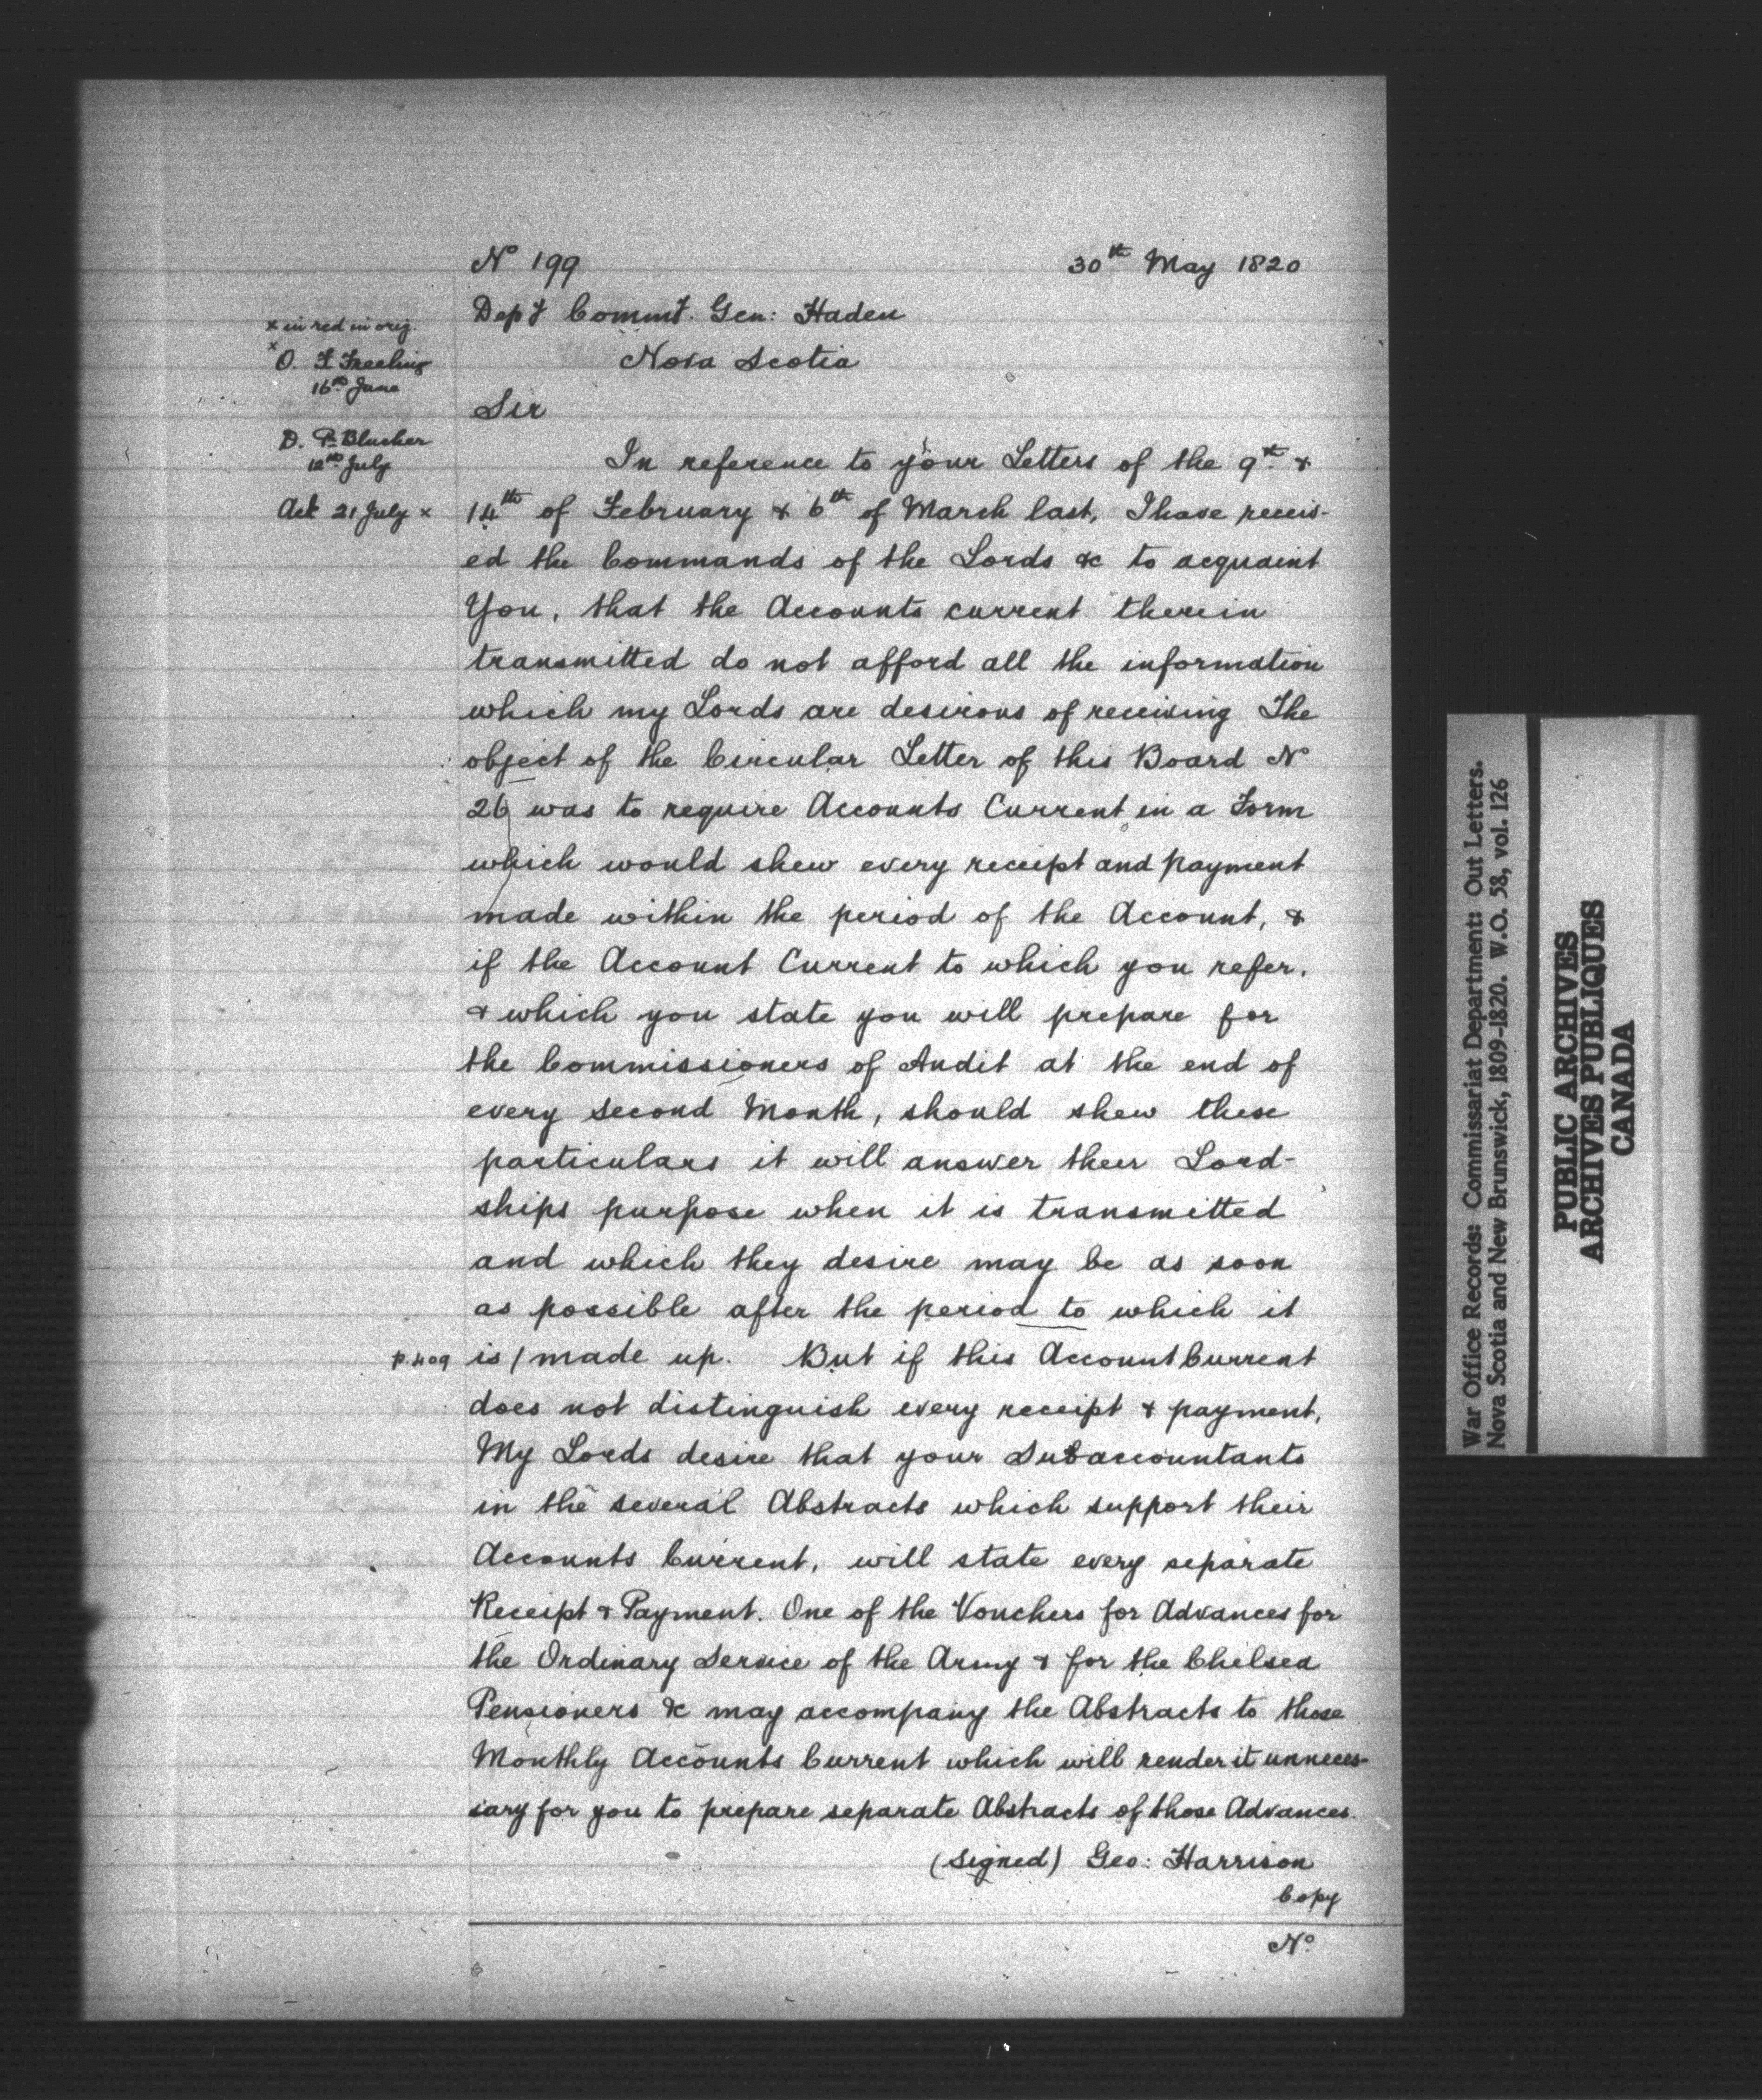 Nº 199
30th May 1820
Dept Commt. Gen: Haden
Nova Scotia
x in red in orig.
x
O. F Freeling
16th June
D. P. Blucher
12th July
Act 21 July x
Sir
In reference to your Letters of the 9th &
14th of February & 6th of March last, I have receiv-
ed the Commands of the Lords &c to acquaint
You, that the Accounts current therein
transmitted do not afford all the information
which my Lords are desirous of receiving The
object of the Circular Letter of this Board Nº
26 was to require Accounts Current in a Form
which would shew every receipt and payment
made within the period of the Account, &
if the Account Current to which you refer,
& which you state you will prepare for
the Commissioners of Audit at the end of
every second Month, should shew these
particulars it will answer their Lord-
ships purpose when it is transmitted
and which they desire may be as soon
as possible after the period to which it
p.409 is / made up. But if this Account Current
does not distinguish every receipt & payment,
My Lords desire that your Subaccountants
in the several Abstracts which support their
Accounts Current, will state every separate
Receipt & Payment. One of the Vouchers for Advances for
the Ordinary Service of the Army & for the Chelsea
Pensioners &c may accompany the Abstracts to those
Monthly Accounts Current which will render it unneces-
sary for you to prepare separate Abstracts of those Advances.
(signed) Geo: Harrison
Copy
Nº
War Office Records: Commissariat Department: Out Letters.
Nova Scotia and New Brunswick, 1809-1820. W.O. 58, vol. 126
PUBLIC ARCHIVES
ARCHIVES PUBLIQUES
CANADA